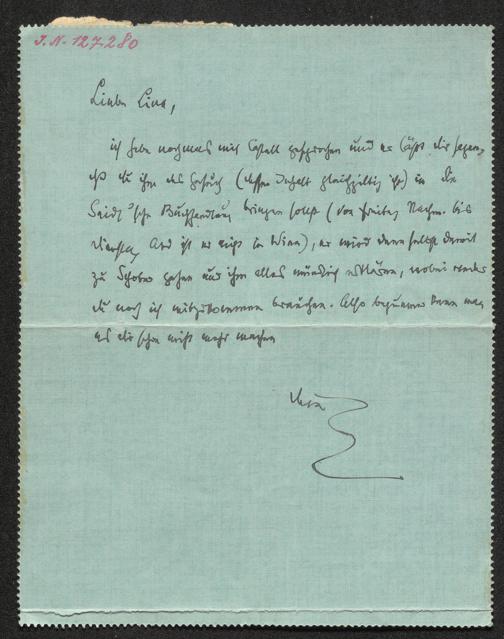 J.N. 127.280
Liebe Lina,
ich habe nochmals mit Castell gesprochen und er läßt dir sagen,
daß du ihm das Gesuch (dessen Inhalt gleichgiltig ist) in die
Buchhandlung bringen sollst (von Freitag Nachm. bis
Dienstag Abd ist er nicht in Wien), er wird dann selbst damit
zu Schober gehen und ihm alles mündlich erklären, wobei weder
du noch ich mitzukommen brauchen. Also bequemer kann man
es dir schon nicht mehr machen
Dein
E